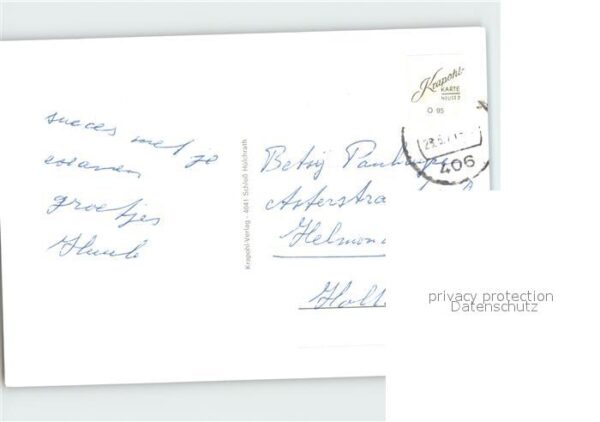 succes met je
examen
groetjes
Krapohl-Verlag · 4041 Schloß Hülchrath
Krapohl-
KARTE
O 95
406
Betsij
Asterstra
Helmon
Holl
privacy protection
Datenschutz